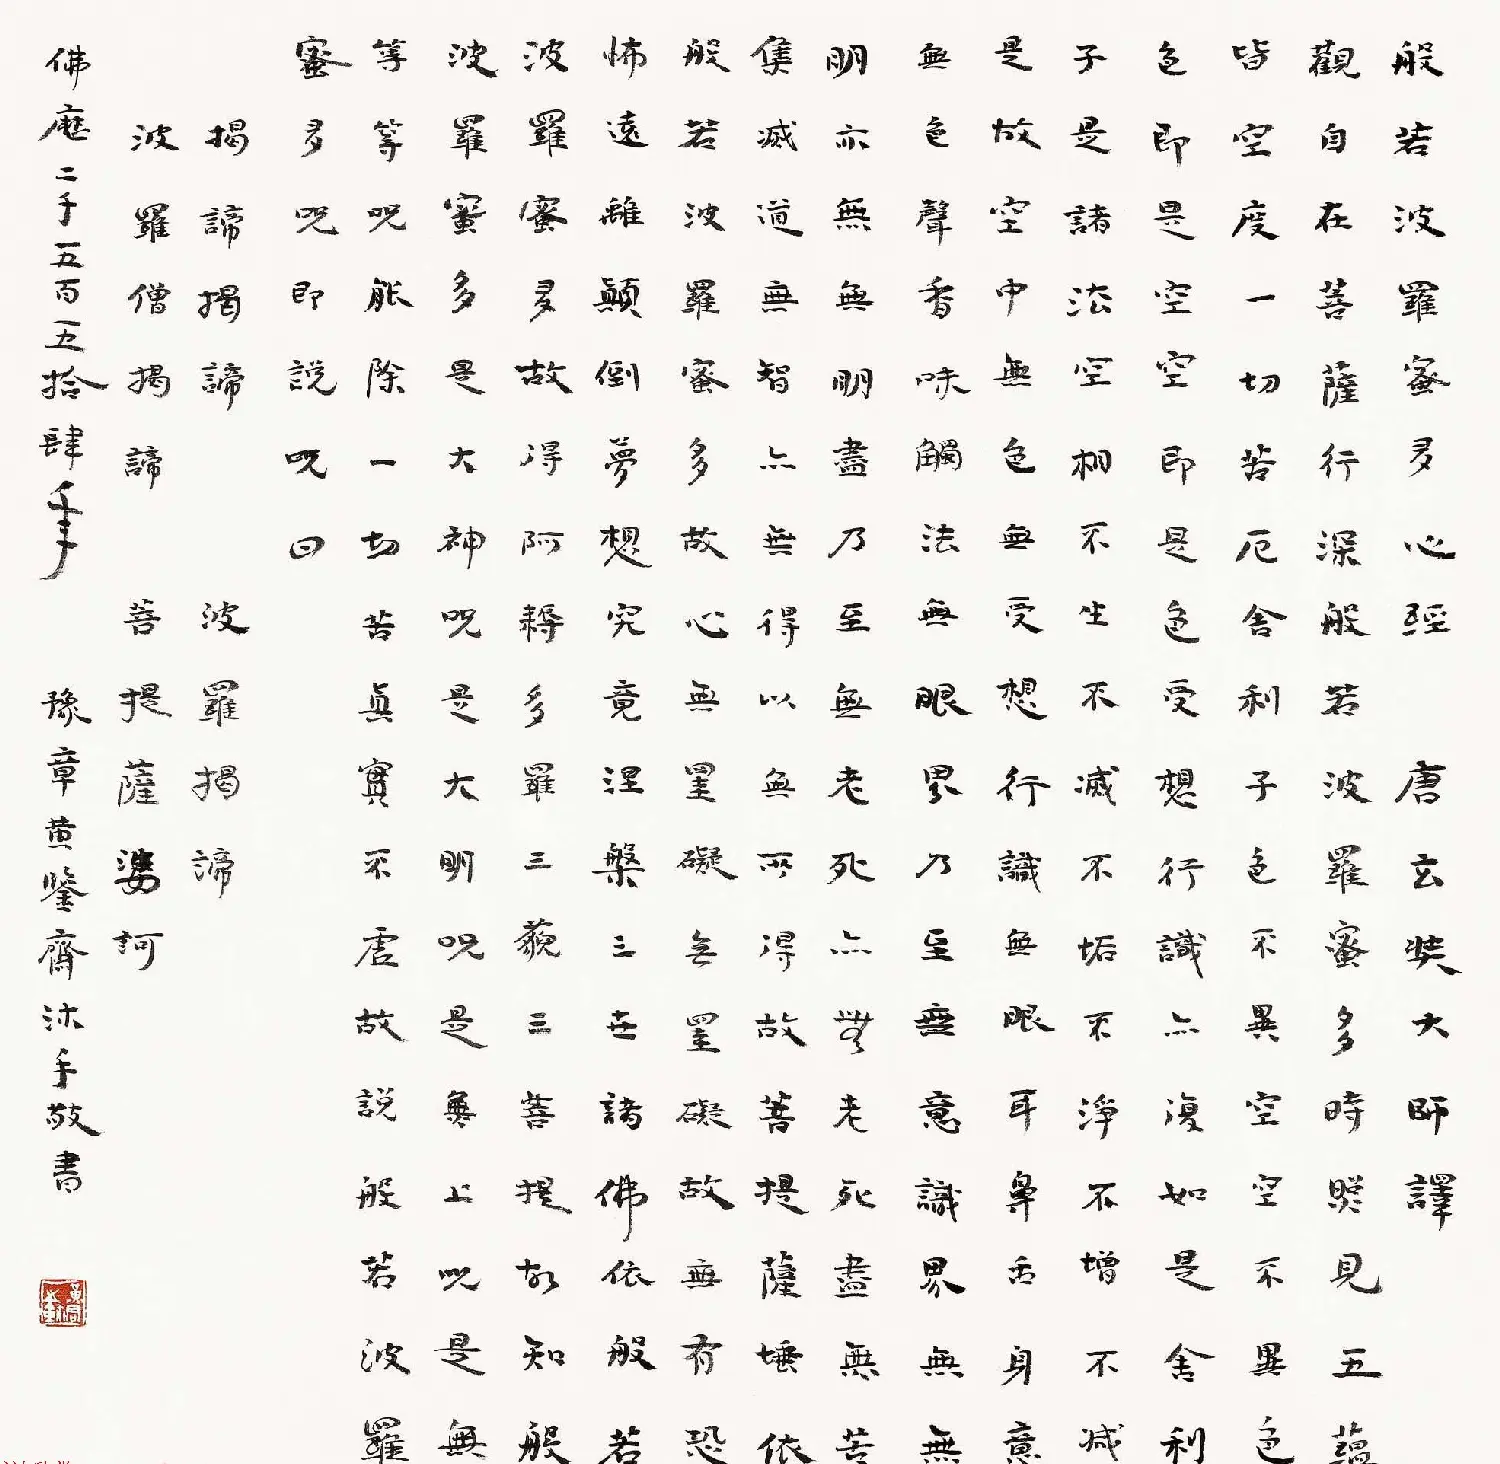 般若波羅蜜多心經 唐玄奘大師譯
觀自在菩薩行深般若波羅蜜多時照見五蘊
皆空度一切苦厄舍利子色不異空空不異色
色即是空空即是色受想行識亦復如是舍利
子是諸法空相不生不滅不垢不淨不增不減
是故空中無色無受想行識無眼耳鼻舌身意
無色聲香味觸法無眼界乃至無意識界無無
明亦無無明盡乃至無老死亦無老死盡無苦
集滅道無智亦無得以無所得故菩提薩埵依
般若波羅蜜多故心無罣礙無罣礙故無有恐
怖遠離顛倒夢想究竟涅槃三世諸佛依般若
波羅蜜多故得阿耨多羅三藐三菩提故知般
波羅蜜多是大神呪是大明呪是無上呪是無
等等呪能除一切苦真實不虛故說般若波羅
蜜多呪即說呪曰
揭諦揭諦 波羅揭諦
波羅僧揭諦 菩提薩婆訶
佛歷二千五百五拾肆年 豫章黄鑒齋沐手敬書